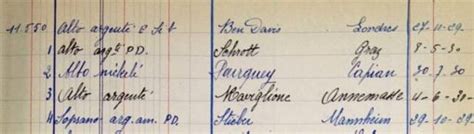 11.550 Alto argenté & Ben Davis Londres 27-11-29
1 alto argté P.D. Schrott Graz 8-5-30
2 Alto nickelé Pourquey Capian 30-7-30
3 Alto argenté Maviglione Annemasse 4-6-30
4 Soprano arg. am. P.D. Stieber Mannheim 29-10-29